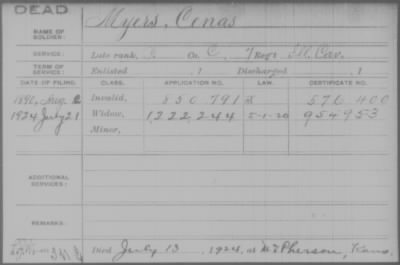 DEAD
NAME OF SOLDIER: Myers, Cenas
SERVICE: Late rank, Co. C, 7 Reg't Ill. Cav.
TERM OF SERVICE: Enlisted , 1 Discharged , 1
DATE OF FILING. CLASS. APPLICATION NO. LAW. CERTIFICATE NO.
1890, Aug. 2 Invalid, 850.791 576.400
1924 July 21 Widow, 1,222,244 5-1-20 954953
Minor,
ADDITIONAL SERVICES:
REMARKS:
Died July 13, 1924, at McPherson, Kans.